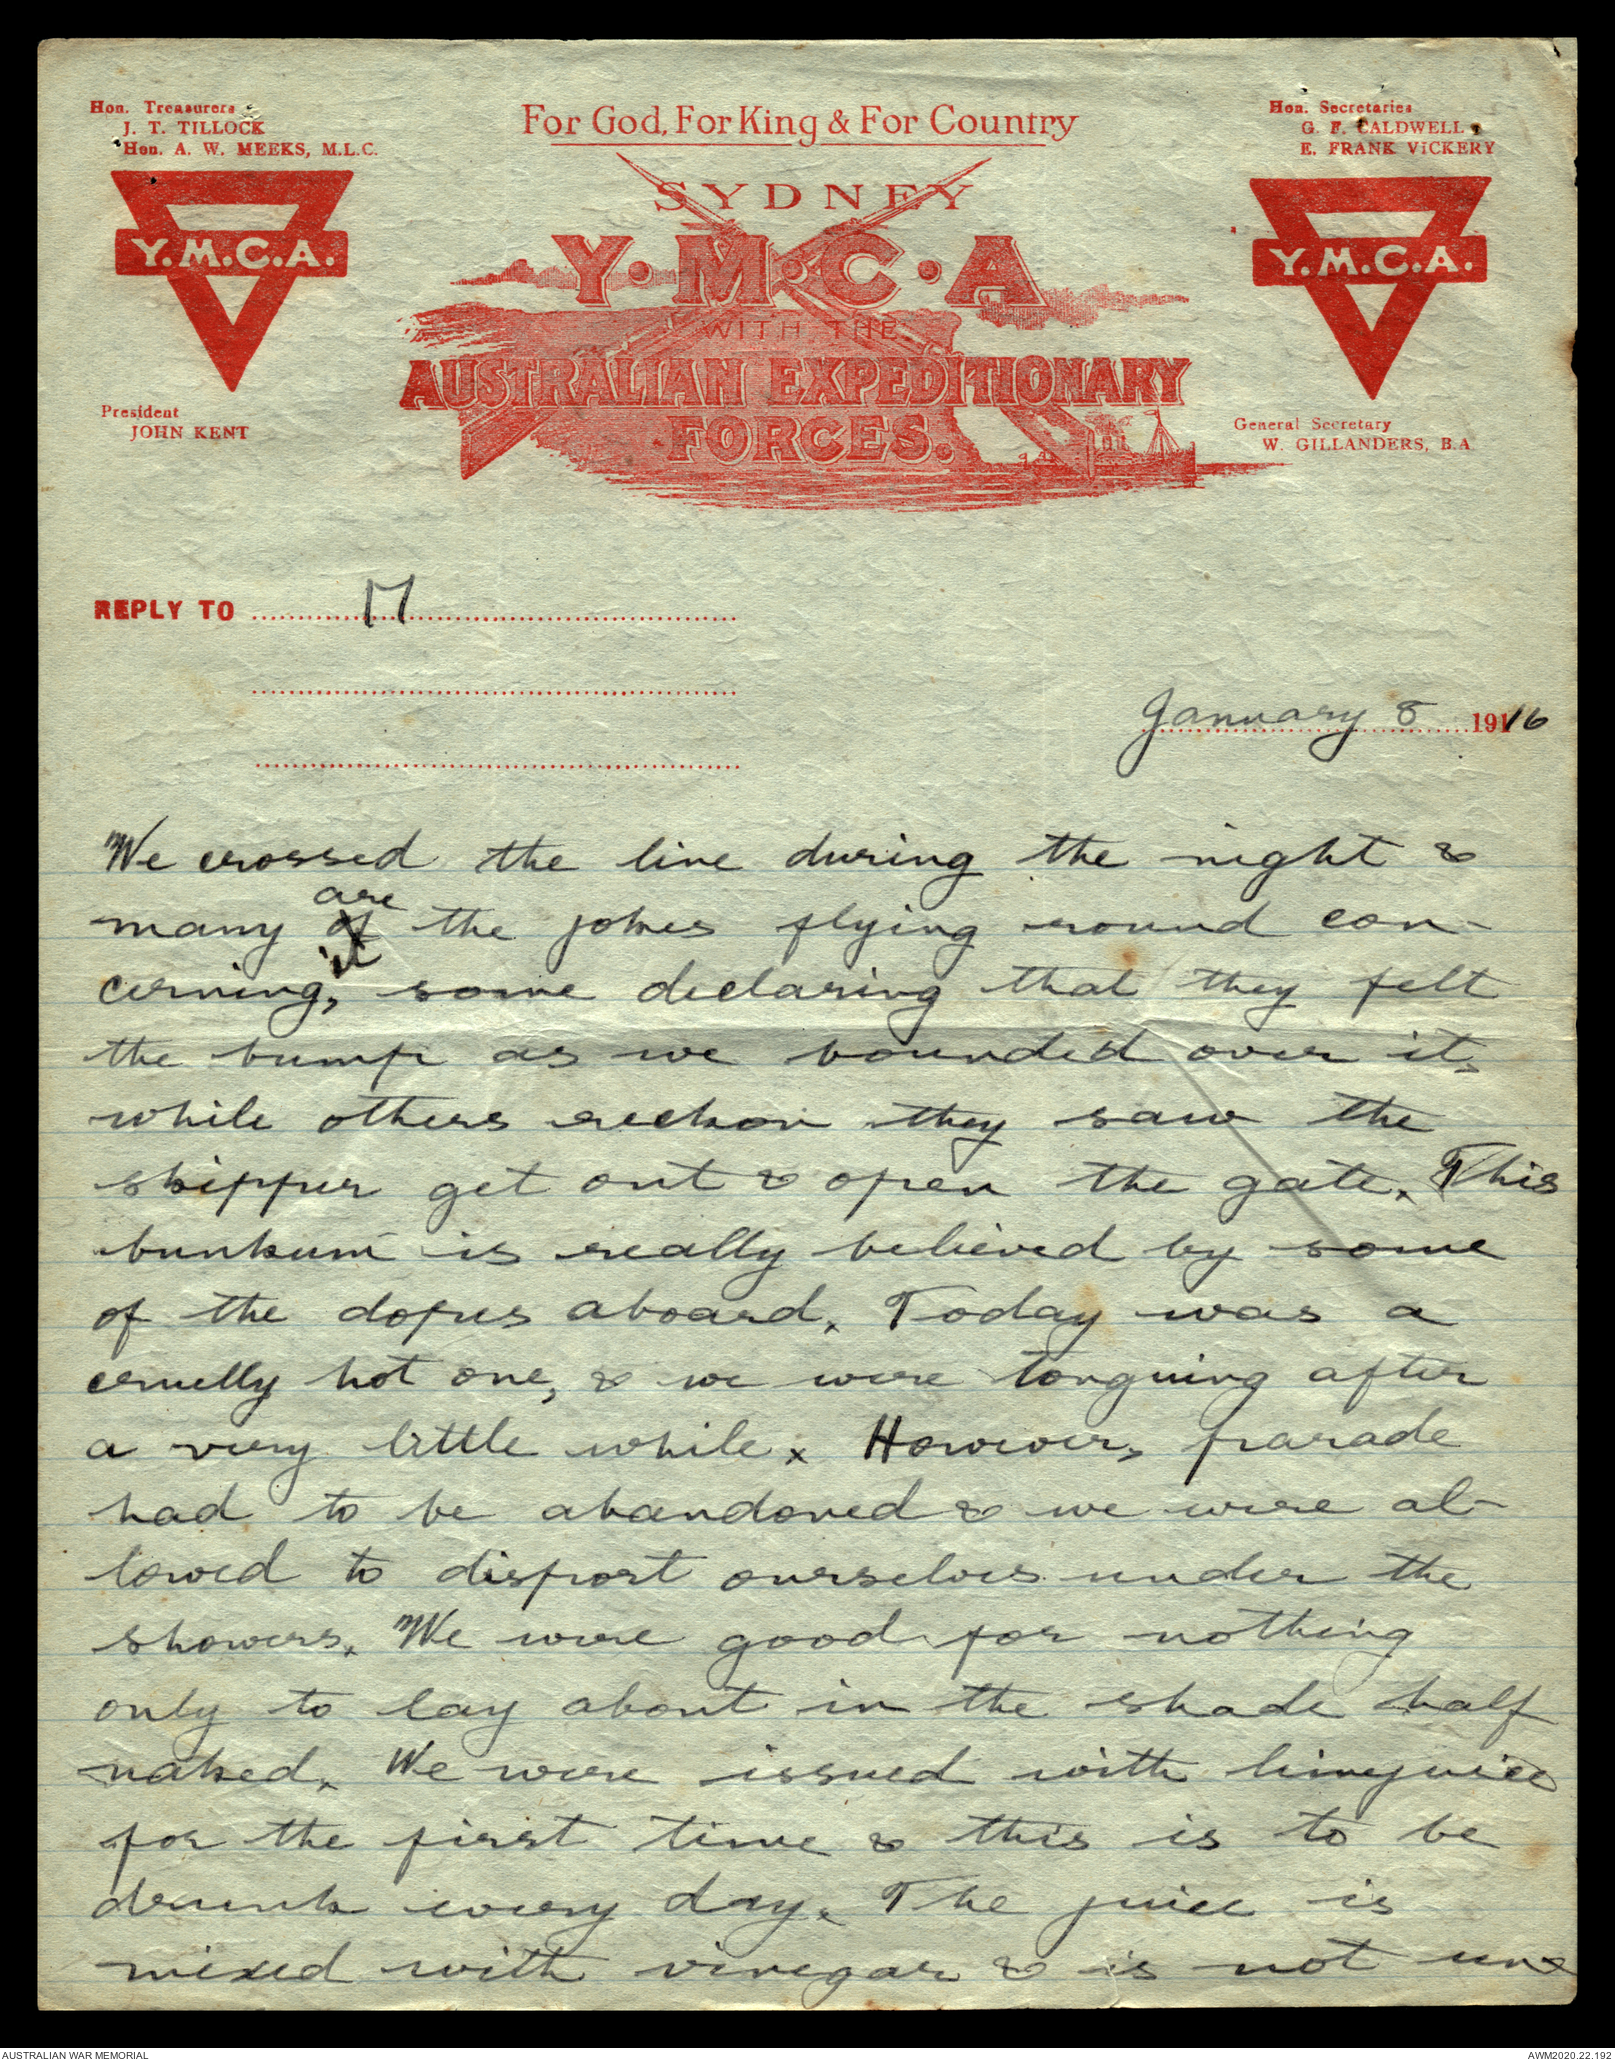 Hon. Treasurers
J. T. TILLOCK
Hon. A. W. MEEKS, M.L.C.
For God, For King & For Country
Hon. Secretaries
G. F. CALDWELL
E. FRANK VICKERY
SYDNEY
Y.M.C.A
WITH THE
AUSTRALIAN EXPEDITIONARY
FORCES.
Y.M.C.A.
Y.M.C.A.
President
JOHN KENT
General Secretary
W. GILLANDERS, B.A
REPLY TO 17
January 8 1916
We crossed the line during the night &
are
many of the jokes flying round con-
it
cerning, some declaring that they felt
the bump as we bounded over it,
while others reckon they saw the
skipper get out & open the gate. This
bunkum is really believed by some
of the dopes aboard. Today was a
cruelly hot one, & we were tonguing after
a very little while. However, parade
had to be abandoned & we were al-
lowed to disport ourselves under the
showers. We were good for nothing
only to lay about in the shade half
naked. We were issued with limejuice
for the first time & this is to be
drunk every day. The juice is
mixed with vinegar & is not un-
AUSTRALIAN WAR MEMORIAL
AWM2020.22.192